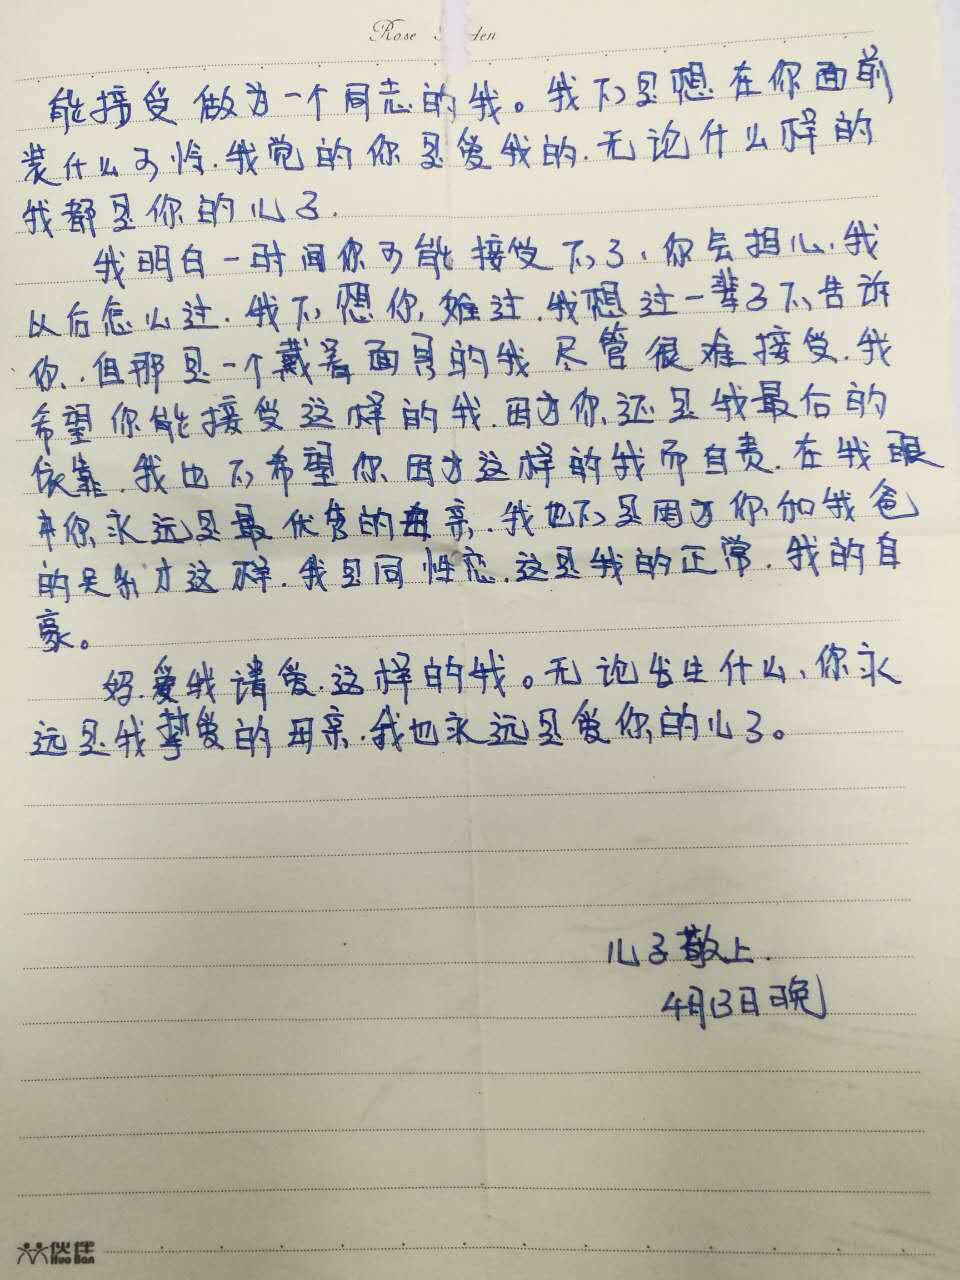 Rose
能接受做为一个同志的我。我不是想在你面前
装什么可怜.我觉的你是爱我的.无论什么样的
我都是你的儿子.
我明白一时间你可能接受不了,你会担心,我
以后怎么过.我不想你,难过.我想过一辈子不告诉
你.但那是一个戴着面具的我尽管很难接受.我
希望你能接受这样的我.因为你还是我最后的
依靠.我也不希望你因为这样的我而自责.在我眼
中你永远是最优秀的母亲.我也不是因为你和我爸
的关系才这样.我是同性恋.这是我的正常.我的自
豪。
妈.爱我请爱这样的我。无论发生什么,你永
远是我挚爱的母亲.我也永远是爱你的儿子。
儿子敬上.
4月13日晚
伙伴
Huo Ban